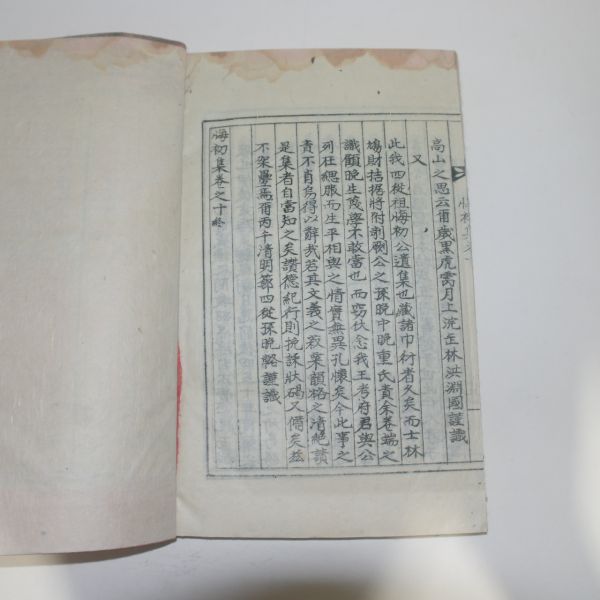 高山之思云爾歲黑虎寎月上浣缶林洪淵國謹識
又
此我四從祖悔初公遺集也藏諸巾衍者久矣而士林
鳩財拮据將附剞劂公之孫晩中晩重氏責余卷端之
識顧晩生蔑學不敢當也而竊伏念我王考府君與公
列在緦服而生平相與之情實無異孔懷矣今此事之
責不肖烏得以辭哉若其文義之寂寞韻格之淸絕讀
是集者自當知之矣讚德紀行則挽誄狀碣又備矣玆
不架疊焉爾丙午清明節四從孫晩 謹識
悔初集卷之十終